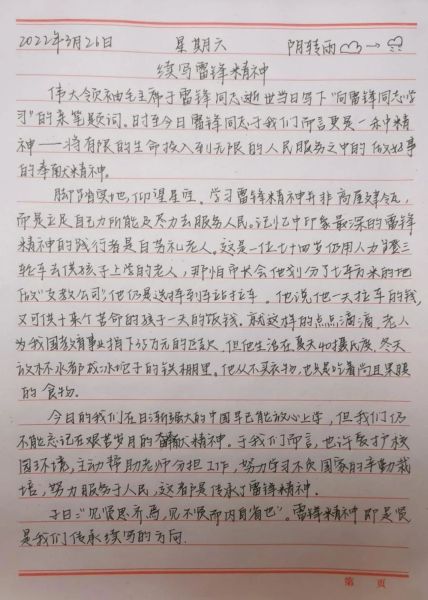 2022年3月26日 星期六 阴转雨 →
续写雷锋精神
伟大领袖毛主席于雷锋同志逝世当日写下“向雷锋同志学
习”的亲笔题词。时至今日雷锋同志于我们而言更是一种精
神——将有限的生命投入到无限的人民服务之中的做好事
的奉献精神。
脚踏实地,仰望星空。学习雷锋精神并非高屋建瓴,
而是立足自己力所能及尽力去服务人民。记忆中印象最深的雷锋
精神的践行者是白芳礼老人。这是一位七十四岁仍用人力三
轮车去供孩子上学的老人,那怕市长令他划分了七平方米的地
做“支教公司”,他仍是选择到车站拉车。他说他一天拉车的钱,
又可供十来个苦命的孩子一天的饭钱。就这样的点点滴滴,老人
为我国教育事业捐下35万元的巨款。但他生活在夏天40摄氏度,冬天
放杯水都成冰坨子的铁棚里。他从不买衣物,也只是吃着尚且果腹
的食物。
今日的我们在日渐强大的中国早已能放心上学,但我们仍
不能忘记在艰苦岁月的奋斗精神。于我们而言,也许爱护校
园环境,主动帮助老师分担工作,努力学习不负国家的辛勤栽
培,努力服务于人民,这都是传承了雷锋精神.
子曰:“见贤思齐焉,见不贤而内自省也”。雷锋精神即是贤
是我们传承续写的方向.
第 页